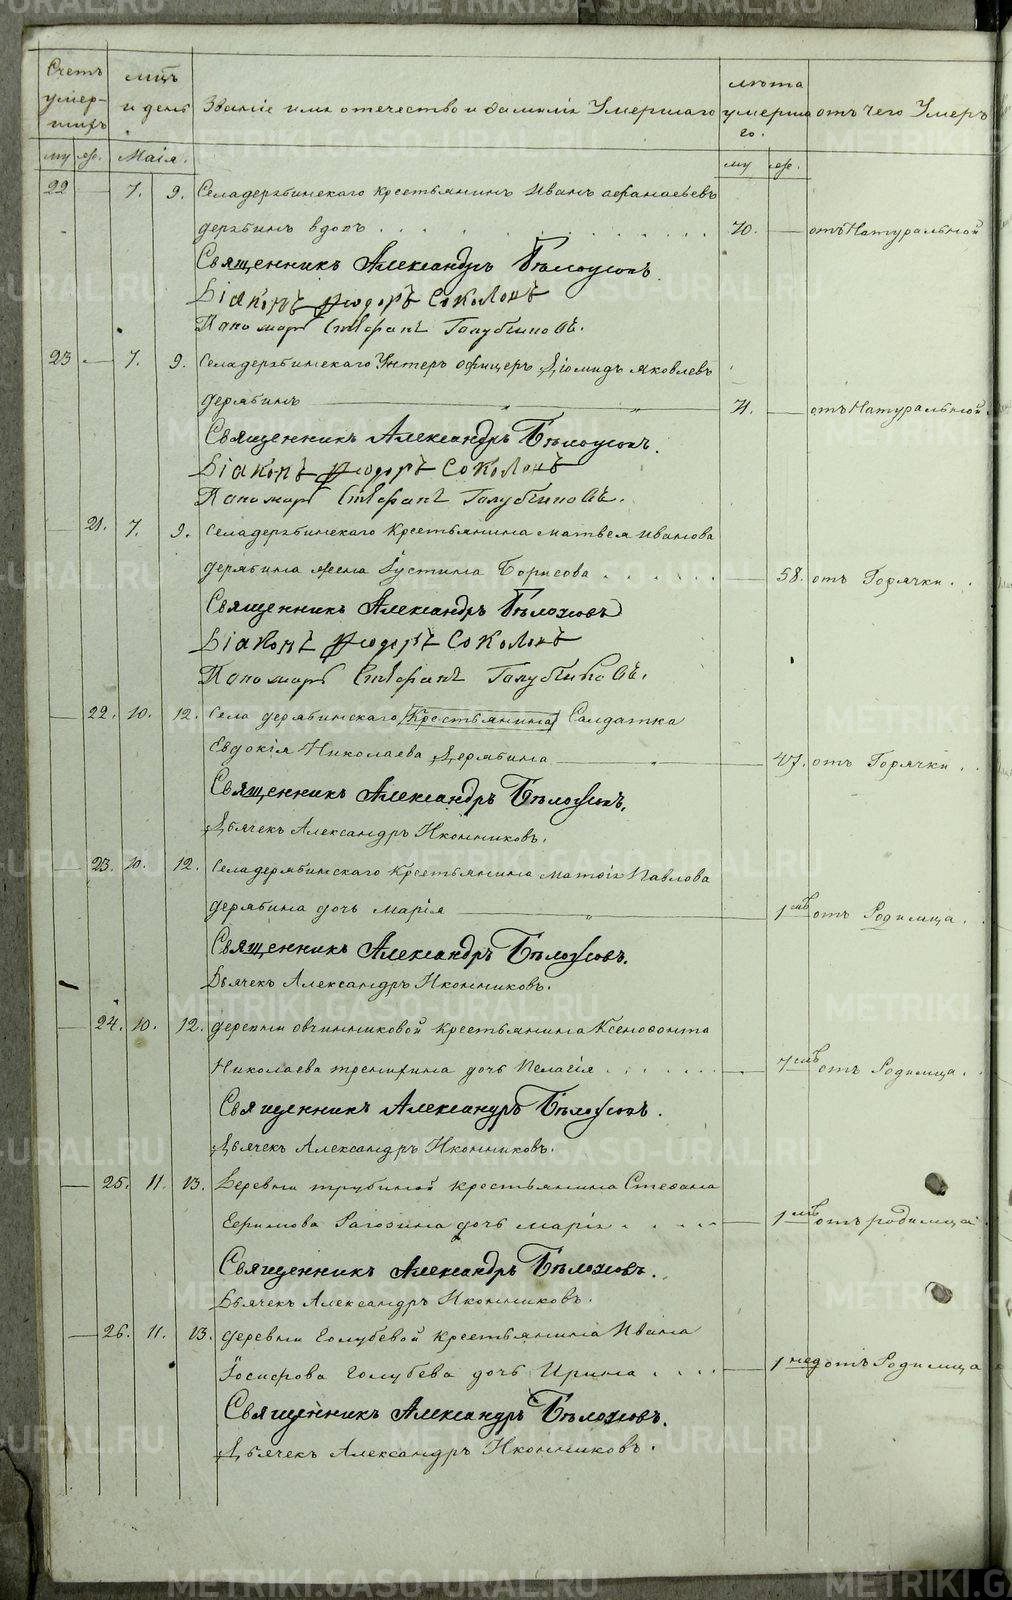 Счетъ умер-шихъ | мцъ и день | Званіе имя отечество и фамилія Умершаго | лѣта умершаго. | отъ чего Умеръ
му | же. | Маія. | му | же.
22 — 7. 9. Селадерябинскаго крестьянинъ Иванъ афанасьевъ
дерябинъ вдовъ . . . . . . . 70. — отъ Натуральной
Священникъ Александръ Бѣлоусовъ.
Діаконъ Ѳеодоръ Соколовъ
Пономарь Стефанъ Голубчиковъ.
23 — 7. 9. Селадерябинскаго Унтеръ офицеръ Діомидъ яковлевъ
дерябинъ — 71. — отъ Натуральной
Священникъ Александръ Бѣлоусовъ.
Діаконъ Ѳеодоръ Соколовъ
Пономарь Стефанъ Голубчиковъ.
— 21. 7. 9. Селадерябинскаго Крестьянина матвея иванова
дерябина жена Іустина Борисова . . . . . . — 58. отъ Горячки . .
Священникъ Александръ Бѣлоусовъ
Діаконъ Ѳеодоръ Соколовъ
Пономарь Стефанъ Голубчиковъ.
— 22. 10. 12. Села дерябинскаго Крестьянина Салдатка
Евдокія Николаева Дерябина — 47. отъ Горячки . .
Священникъ Александръ Бѣлоусовъ.
Дьячекъ Александръ Иконниковъ.
— 23. 10. 12. Селадерябинскаго Крестьянина матѳія Павлова
дерябина дочь марія — 1 мцъ отъ Родимца . .
Священникъ Александръ Бѣлоусовъ.
Дьячекъ Александръ Иконниковъ.
— 24. 10. 12. деревни овчинниковой крестьянина Ксенофонта
Николаева тренихина дочь Пелагія . . . . . — 7 мцъ отъ Родимца . .
Священникъ Александръ Бѣлоусовъ.
Дьячекъ Александръ Иконниковъ.
— 25. 11. 13. Деревни трубиной крестьянина Стефана
Ефимова Рагозина дочь марія . . . . — 1 мцъ отъ родимца .
Священникъ Александръ Бѣлоусовъ.
Дьячекъ Александръ Иконниковъ.
— 26. 11. 13. деревни Голубевой крестьянина Ивана
Іосифова Голубева дочь Ирина . . . . — 1 нед отъ Родимца
Священникъ Александръ Бѣлоусовъ.
Дьячекъ Александръ Иконниковъ.
METRIKI.GASO-URAL.RU